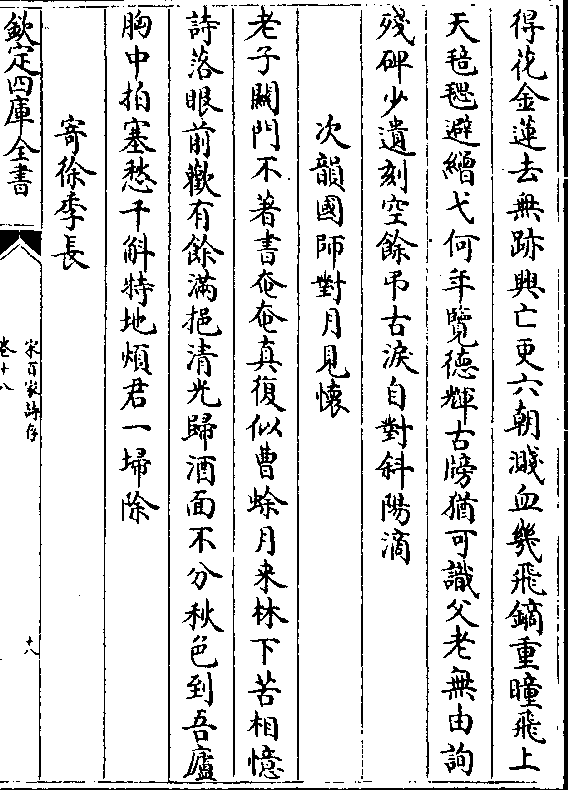 得花金蓮去無跡興亡更六朝濺血幾飛鏑重瞳飛上
天毰毸避繒弋何年覽德輝古牓猶可識父老無由詢
殘碑少遺刻空餘弔古淚自對斜陽滴
次韻國師對月見懷
老子關門不著書奄奄真復似曹蜍月来林下苦相憶
詩落眼前歡有餘滿挹清光歸酒面不分秋色到吾廬
胸中拍塞愁千斛特地煩君一埽除
寄徐季長
欽定四庫全書
宋百家詩存
卷十八
十八